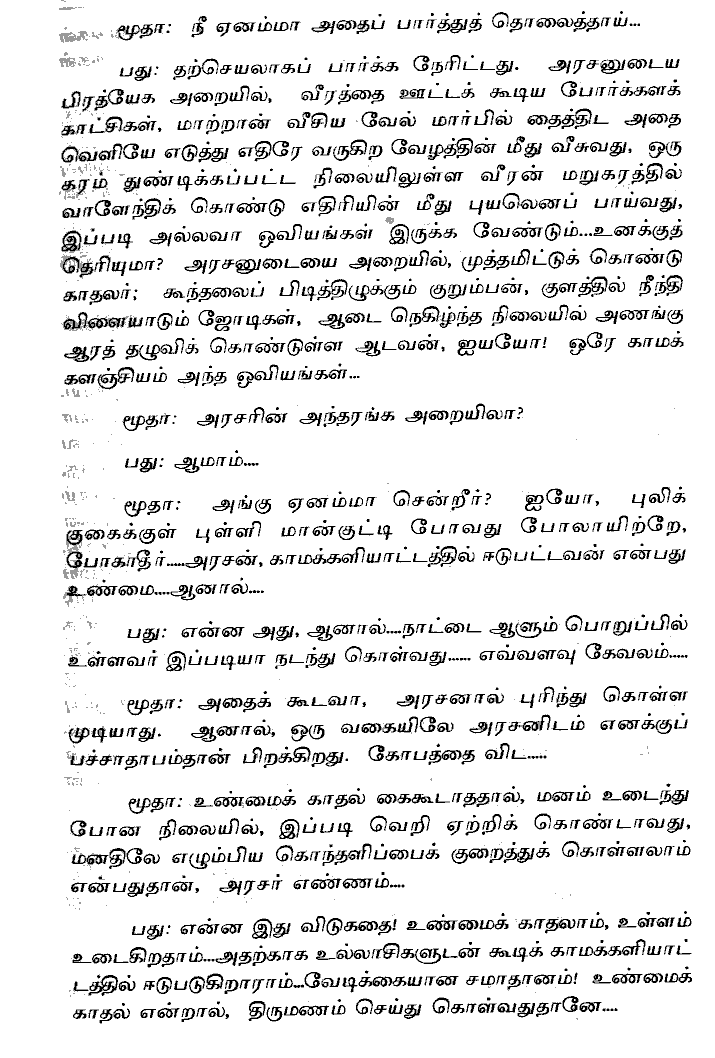 மூதா: நீ ஏனம்மா அதைப் பார்த்துத் தொலைத்தாய்...
பது: தற்செயலாகப் பார்க்க நேரிட்டது. அரசனுடைய
பிரத்யேக அறையில், வீரத்தை ஊட்டக் கூடிய போர்க்களக்
காட்சிகள், மாற்றான் வீசிய வேல் மார்பில் தைத்திட அதை
வெளியே எடுத்து எதிரே வருகிற வேழத்தின் மீது வீசுவது, ஒரு
கரம் துண்டிக்கப்பட்ட நிலையிலுள்ள வீரன் மறுகரத்தில்
வாளேந்திக் கொண்டு எதிரியின் மீது புயலெனப் பாய்வது,
இப்படி அல்லவா ஒவியங்கள் இருக்க வேண்டும்...உனக்குத்
தெரியுமா? அரசனுடையை அறையில், முத்தமிட்டுக் கொண்டு
காதலர்; கூந்தலைப் பிடித்திழுக்கும் குறும்பன், குளத்தில் நீந்தி
விளையாடும் ஜோடிகள், ஆடை நெகிழ்ந்த நிலையில் அணங்கு
ஆரத் தழுவிக் கொண்டுள்ள ஆடவன், ஐயயோ! ஒரே காமக்
களஞ்சியம் அந்த ஒவியங்கள்...
மூதா: அரசரின் அந்தரங்க அறையிலா?
பது: ஆமாம்....
மூதா: அங்கு ஏனம்மா சென்றீர்? ஐயோ, புலிக்
குகைக்குள் புள்ளி மான்குட்டி போவது போலாயிற்றே,
போகாதீர்.....அரசன், காமக்களியாட்டத்தில் ஈடுபட்டவன் என்பது
உண்மை....ஆனால்....
பது: என்ன அது, ஆனால்....நாட்டை ஆளும் பொறுப்பில்
உள்ளவர் இப்படியா நடந்து கொள்வது...... எவ்வளவு கேவலம்.....
மூதா: அதைக் கூடவா, அரசனால் புரிந்து கொள்ள
முடியாது. ஆனால், ஒரு வகையிலே அரசனிடம் எனக்குப்
பச்சாதாபம்தான் பிறக்கிறது. கோபத்தை விட.....
மூதா: உண்மைக் காதல் கைகூடாததால், மனம் உடைந்து
போன நிலையில், இப்படி வெறி ஏற்றிக் கொண்டாவது,
மனதிலே எழும்பிய கொந்தளிப்பைக் குறைத்துக் கொள்ளலாம்
என்பதுதான், அரசர் எண்ணம்....
பது: என்ன இது விடுகதை! உண்மைக் காதலாம், உள்ளம்
உடைகிறதாம்...அதற்காக உல்லாசிகளுடன் கூடிக் காமக்களியாட்
டத்தில் ஈடுபடுகிறாராம்...வேடிக்கையான சமாதானம்! உண்மைக்
காதல் என்றால், திருமணம் செய்து கொள்வதுதானே....